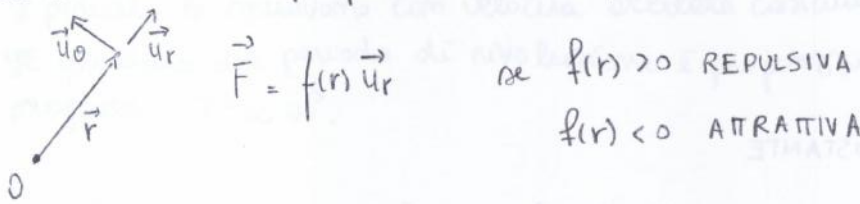 u⃗θ u⃗r
F⃗ = f(r) u⃗r se f(r) > 0 REPULSIVA
r⃗
f(r) < 0 ATTRATTIVA
O